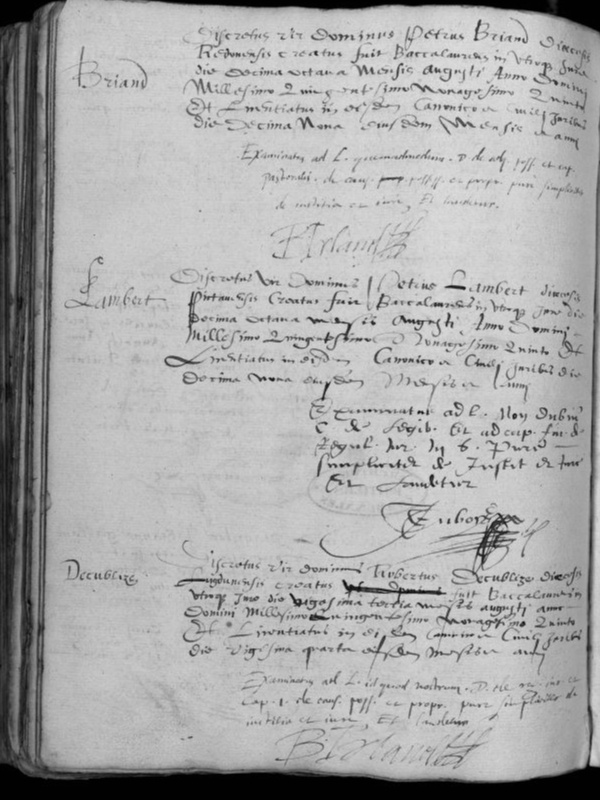 Briand
Discretus vir Dominus Petrus Briand diocesis
Redonensis creatus fuit Baccalaureus in utroque Jure
die decima octava Mensis Augusti Anno Domini
Millesimo Quingentesimo Nonagesimo Quinto
Et Licentiatus in eisdem Canonico et Civili Juribus
die Decima Nona eiusdem Mensis et anni
Examinatus ad L. quemadmodum. D. de adq. poss. et cap.
pastoralis. de caus. poss. et propr. pure simpliciter
de iustitia et iure, Et laudetur.
Lambert
Discretus Vir Dominus Petrus Lambert diocesis
Pictaviensis Creatus fuit Baccalaureus in utroque Jure die
decima octava mensis Augusti Anno Domini
Millesimo Quingentesimo Nonagesimo Quinto Et
Licentiatus in eisdem Canonico et Civili Juribus die
decima nona eiusdem Mensis et anni
Examinatus ad l. Non dubium
C. de Legib. Et ad cap.
Regul. Jur. in 6. Pure
simpliciter de Justit et Jure
Et laudetur
Decublize
Discretus vir dominus Robertus Decublize diocesis
Lugdunensis creatus fuit Baccalaureus in
utroque Jure die vigesima tertia mensis augusti anno
Domini Millesimo Quingentesimo Nonagesimo Quinto
Et Licentiatus in eisdem Canonico Civili Juribus
die Vigesima quarta eiusdem Mensis et anni
Examinatus ad L. id quod nostrum. D. de reg. iur. et
Cap. 1. de caus. poss. et propr. pure simpliciter de
iustitia et iure, Et laudetur